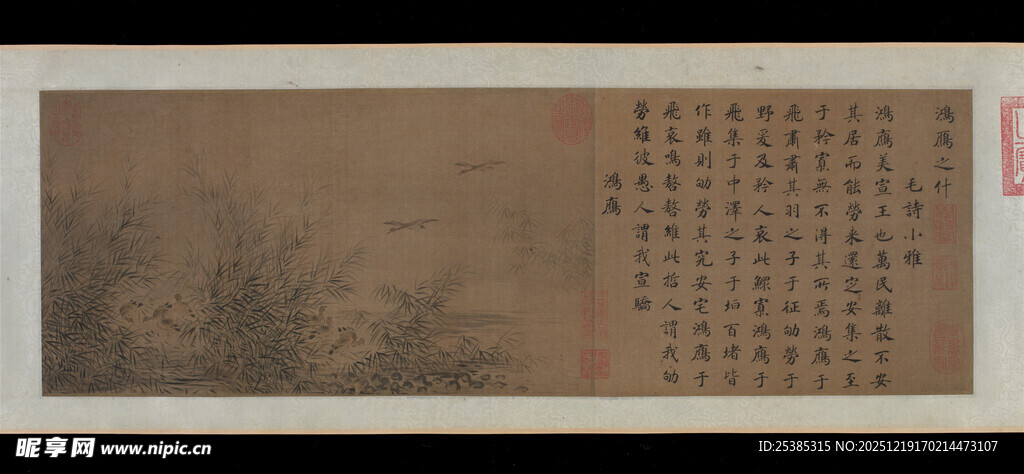 鴻鴈之什
毛詩小雅
鴻鴈美宣王也萬民離散不安
其居而能勞来還定安集之至
于矜寡無不得其所焉鴻鴈于
飛肅肅其羽之子于征劬勞于
野爰及矜人哀此鰥寡鴻鴈于
飛集于中澤之子于垣百堵皆
作雖則劬勞其究安宅鴻鴈于
飛哀鳴嗸嗸維此哲人謂我劬
勞維彼愚人謂我宣驕
鴻鴈
昵享网 www.nipic.cn
ID:25385315 NO:20251219170214473107